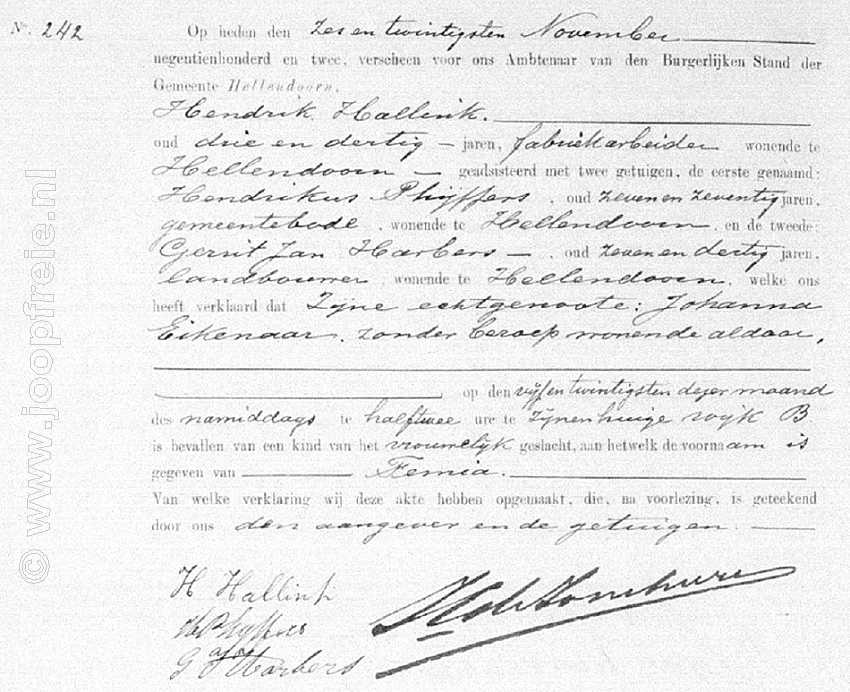 Nº. 242
Op heden den zes en twintigsten November
negentienhonderd en twee, verscheen voor ons Ambtenaar van den Burgerlijken Stand der
Gemeente Hellendoorn,
Hendrik Hallink.
oud drie en dertig — jaren, fabriekarbeider wonende te
Hellendoorn — geadsisteerd met twee getuigen, de eerste genaamd:
Hendrikus Phijffers, oud zeven en zeventig jaren,
gemeentebode, wonende te Hellendoorn, en de tweede:
Gerrit Jan Harbers —, oud zeven en dertig jaren,
landbouwer, wonende te Hellendoorn, welke ons
heeft verklaard dat Zijne echtgenoote: Johanna
Eikenaar, zonder beroep wonende aldaar,
op den vijf en twintigsten dezer maand
des namiddags te half twee ure te Zijnen huize wijk B
is bevallen van een kind van het vrouwelijk geslacht, aan hetwelk de voornaam is
gegeven van Femia.
Van welke verklaring wij deze akte hebben opgemaakt, die, na voorlezing, is geteekend
door ons den aangever en de getuigen.
H Hallink
H Phijffers
G J Harbers
© www.joopfreie.nl